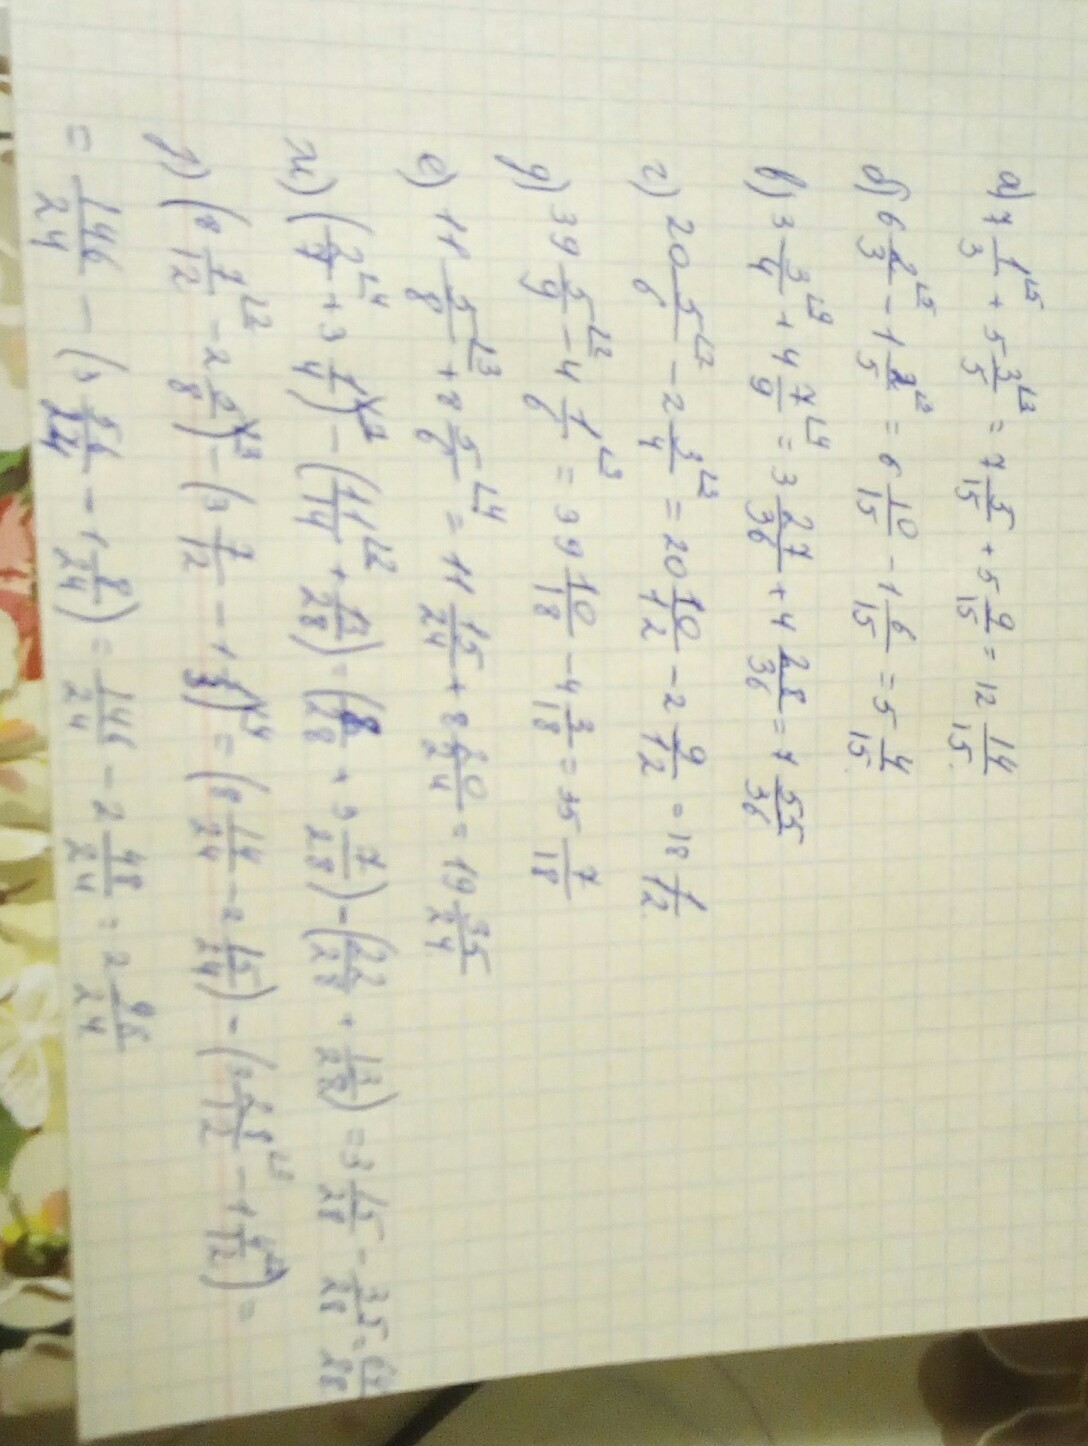 а) 7 1/3 ⌞5 + 5 3/5 ⌞3 = 7 5/15 + 5 9/15 = 12 14/15.
б) 6 2/3 ⌞5 - 1 2/5 ⌞3 = 6 10/15 - 1 6/15 = 5 4/15.
в) 3 3/4 ⌞9 + 4 7/9 ⌞4 = 3 27/36 + 4 28/36 = 7 55/36
г) 20 5/6 ⌞2 - 2 3/4 ⌞3 = 20 10/12 - 2 9/12 = 18 1/12.
д) 39 5/9 ⌞2 - 4 1/6 ⌞3 = 39 10/18 - 4 3/18 = 35 7/18
е) 11 5/8 ⌞3 + 8 5/6 ⌞4 = 11 15/24 + 8 20/24 = 19 35/24
ж) (2/7 ⌞4 + 3 1/4 ⌞7) - (11/14 ⌞2 + 13/28) = (8/28 + 3 7/28) - (22/28 + 13/28) = 3 15/28 - 35/28 = 64/28
з) (8 7/12 ⌞2 - 2 /8 ⌞3) - (3 7/12 - 1 1/3 ⌞4) = (8 14/24 - 2 15/24) - (3 28/12 - 1 4/12) =
= 146/24 - (3 56/24 - 1 8/24) = 146/24 - 2 48/24 = 2 96/24